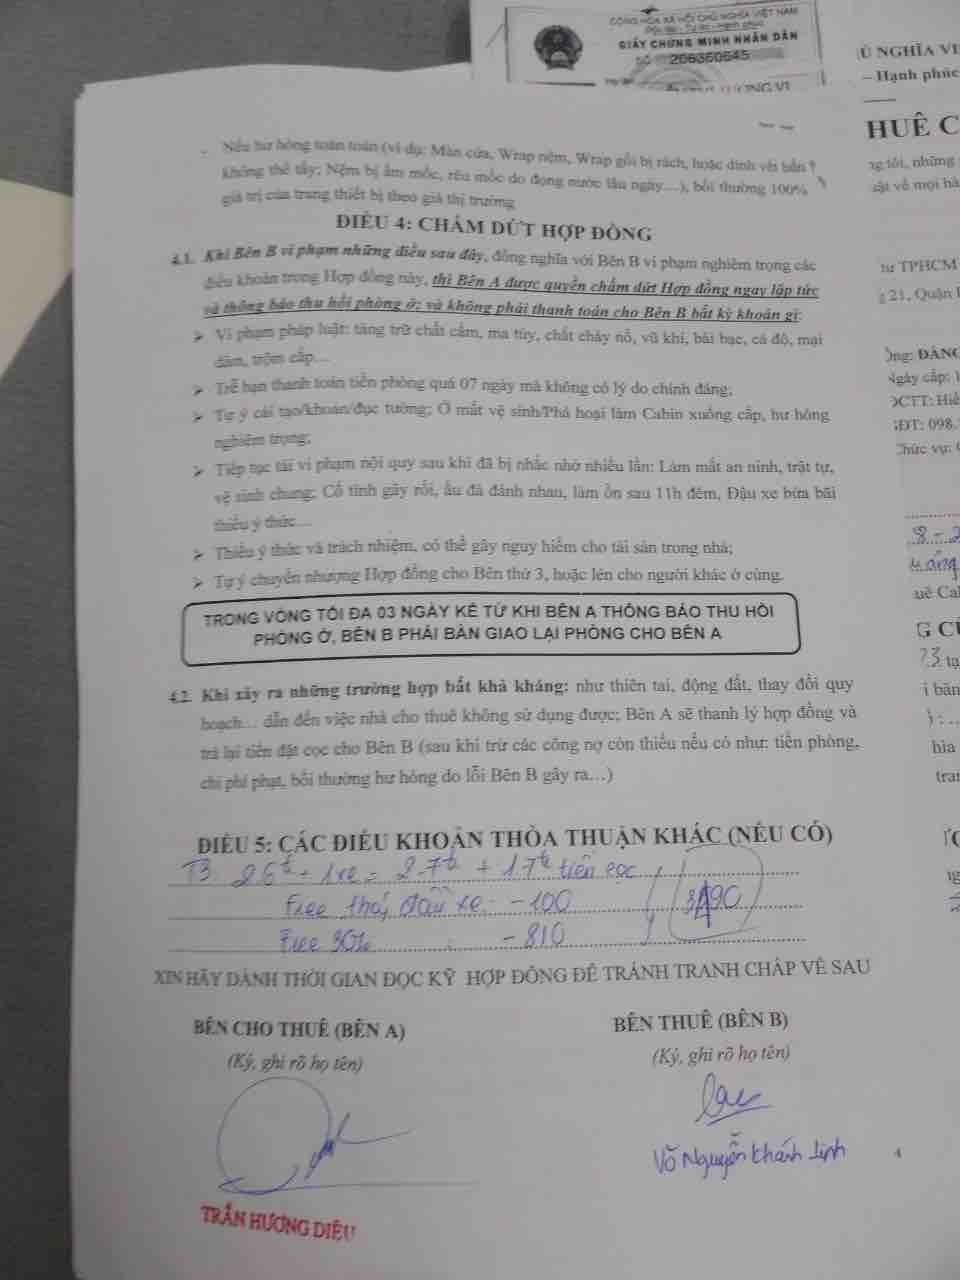 CỘNG HÒA XÃ HỘI CHỦ NGHĨA VIỆT NAM
Độc lập - Tự do - Hạnh phúc
GIẤY CHỨNG MINH NHÂN DÂN
SỐ 206360645
Ủ NGHĨA VI
– Hạnh phúc
HUÊ C
ng tôi, những
uật về mọi hà
tư TPHCM
g 21, Quận
ông: ĐĂNG
Ngày cấp: 1
ĐCTT: Hiề
SĐT: 098.
Chức vụ: G
uê Ca
G CỦ
- Nếu hư hỏng toàn toàn (ví dụ: Màn cửa, Wrap nệm, Wrap gối bị rách, hoặc dính vết bẩn
không thể tẩy; Nệm bị ẩm mốc, rêu mốc do đọng nước lâu ngày....), bồi thường 100%
giá trị của trang thiết bị theo giá thị trường
ĐIỀU 4: CHẤM DỨT HỢP ĐỒNG
4.1. Khi Bên B vi phạm những điều sau đây, đồng nghĩa với Bên B vi phạm nghiêm trọng các
điều khoản trong Hợp đồng này, thì Bên A được quyền chấm dứt Hợp đồng ngay lập tức
và thông báo thu hồi phòng ở; và không phải thanh toán cho Bên B bất kỳ khoản gì:
➢ Vi phạm pháp luật: tàng trữ chất cấm, ma túy, chất cháy nổ, vũ khí, bài bạc, cá độ, mại
dâm, trộm cắp...
➢ Trễ hạn thanh toán tiền phòng quá 07 ngày mà không có lý do chính đáng;
➢ Tự ý cải tạo/khoan/đục tường; Ở mất vệ sinh/Phá hoại làm Cabin xuống cấp, hư hỏng
nghiêm trọng;
➢ Tiếp tục tái vi phạm nội quy sau khi đã bị nhắc nhở nhiều lần: Làm mất an ninh, trật tự,
vệ sinh chung; Cố tình gây rối, ẩu đả đánh nhau, làm ồn sau 11h đêm, Đậu xe bừa bãi
thiếu ý thức...
➢ Thiếu ý thức và trách nhiệm, có thể gây nguy hiểm cho tài sản trong nhà;
➢ Tự ý chuyển nhượng Hợp đồng cho Bên thứ 3, hoặc lén cho người khác ở cùng.
TRONG VÒNG TỐI ĐA 03 NGÀY KỂ TỪ KHI BÊN A THÔNG BÁO THU HỒI
PHÒNG Ở, BÊN B PHẢI BÀN GIAO LẠI PHÒNG CHO BÊN A
4.2. Khi xảy ra những trường hợp bất khả kháng: như thiên tai, động đất, thay đổi quy
hoạch... dẫn đến việc nhà cho thuê không sử dụng được; Bên A sẽ thanh lý hợp đồng và
trả lại tiền đặt cọc cho Bên B (sau khi trừ các công nợ còn thiếu nếu có như: tiền phòng,
chi phí phạt, bồi thường hư hỏng do lỗi Bên B gây ra...)
ĐIỀU 5: CÁC ĐIỀU KHOẢN THỎA THUẬN KHÁC (NẾU CÓ)
T3 2.6tr + 1xe = 2.7tr + 1.7tr tiền cọc
Free tháng đầu xe: -100
Free 30% : -810
XIN HÃY DÀNH THỜI GIAN ĐỌC KỸ HỢP ĐỒNG ĐỂ TRÁNH TRANH CHẤP VỀ SAU
BÊN CHO THUÊ (BÊN A)
(Ký, ghi rõ họ tên)
BÊN THUÊ (BÊN B)
(Ký, ghi rõ họ tên)
Võ Nguyễn Khánh Linh
TRẦN HƯƠNG DIỆU
4